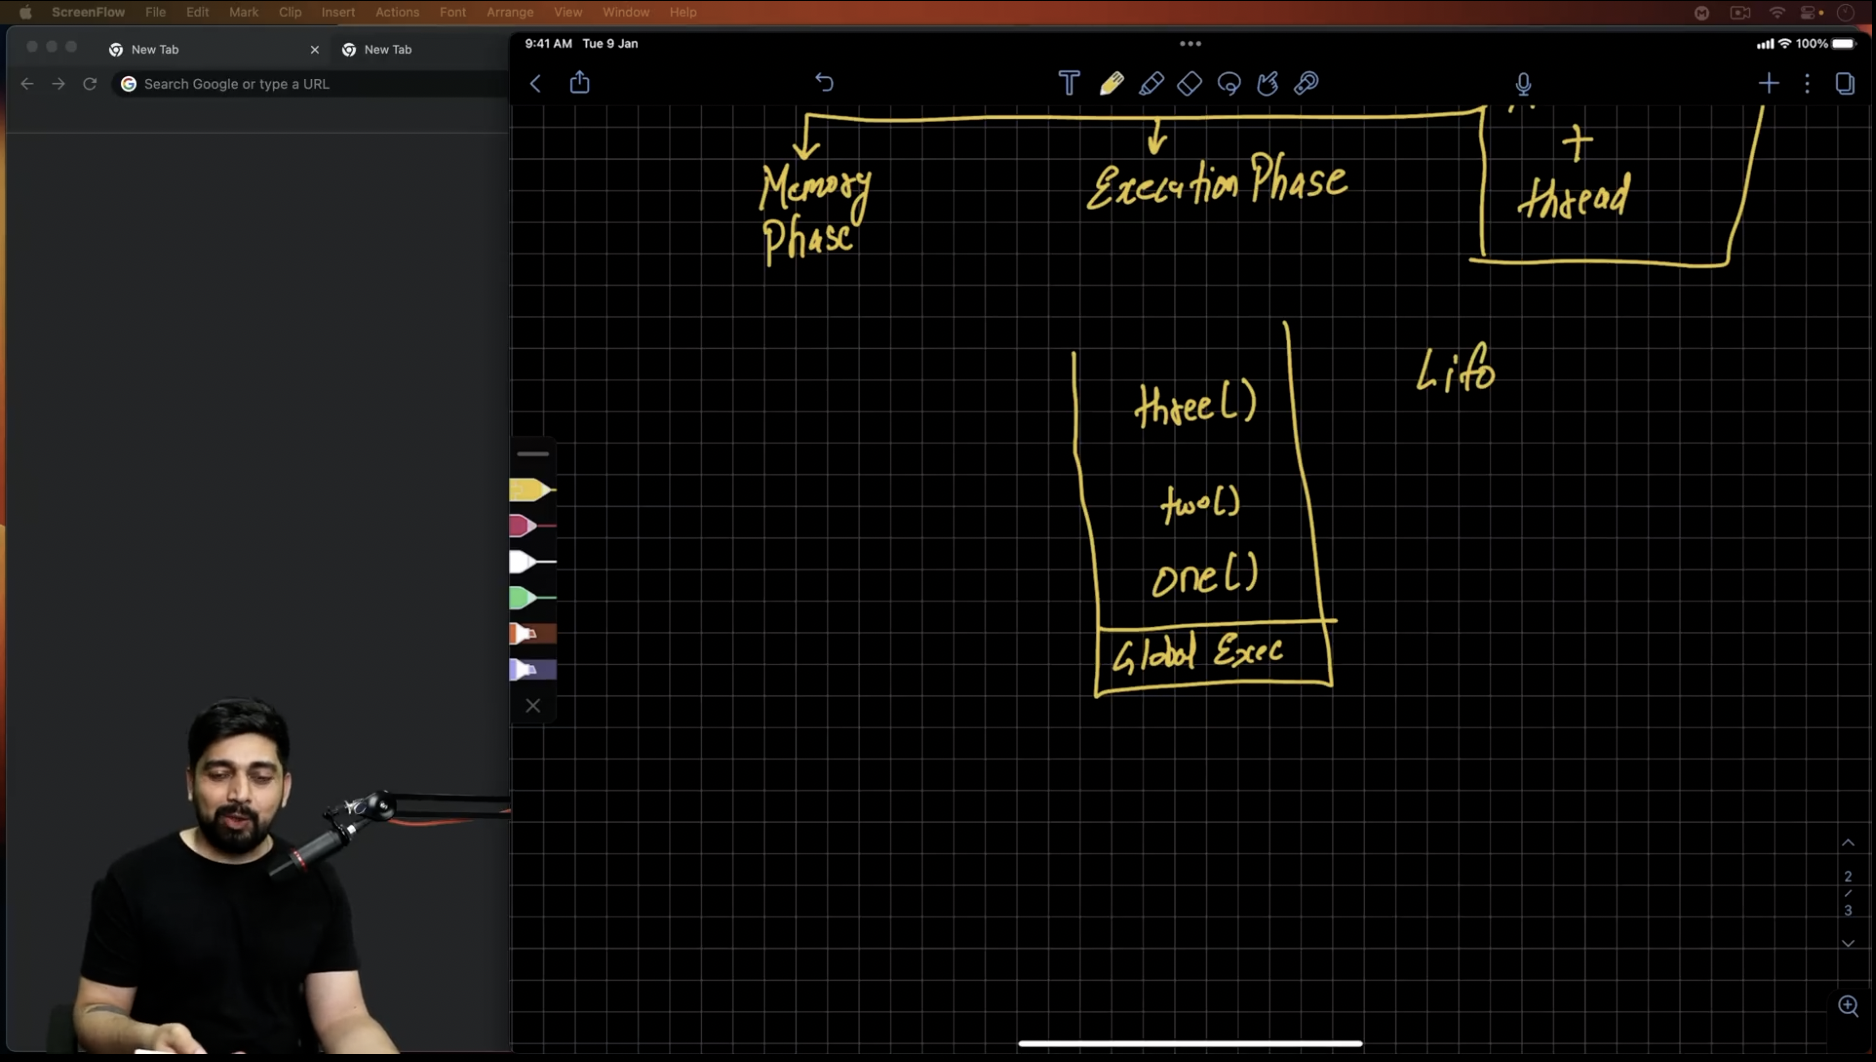 ScreenFlow File Edit Mark Clip Insert Actions Font Arrange View Window Help
New Tab
New Tab
Search Google or type a URL
9:41 AM Tue 9 Jan
100%
T
+
Memory
Phase
Execution Phase
+
thread
three()
Lifo
two()
one()
Global Exec
2
/
3